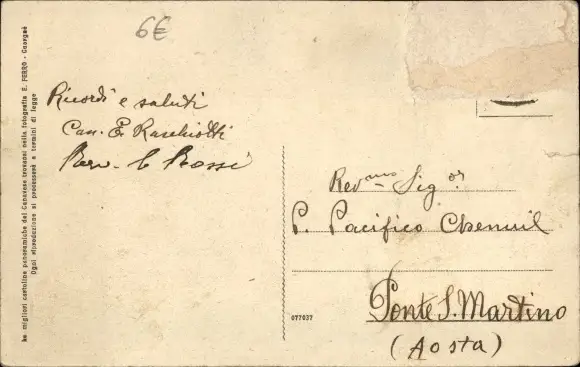 6€
Le migliori cartoline panoramiche del Canavese trovansi nella fotografia E. FERRO - Cuorgnè
Ogni riproduzione si processerà a termini di legge
Ricordi e saluti
Can. E. Raschiotti
Rossi
Rev.mo Sig.or
P. Pacifico Chenuil
077037
Ponte S. Martino
(Aosta)